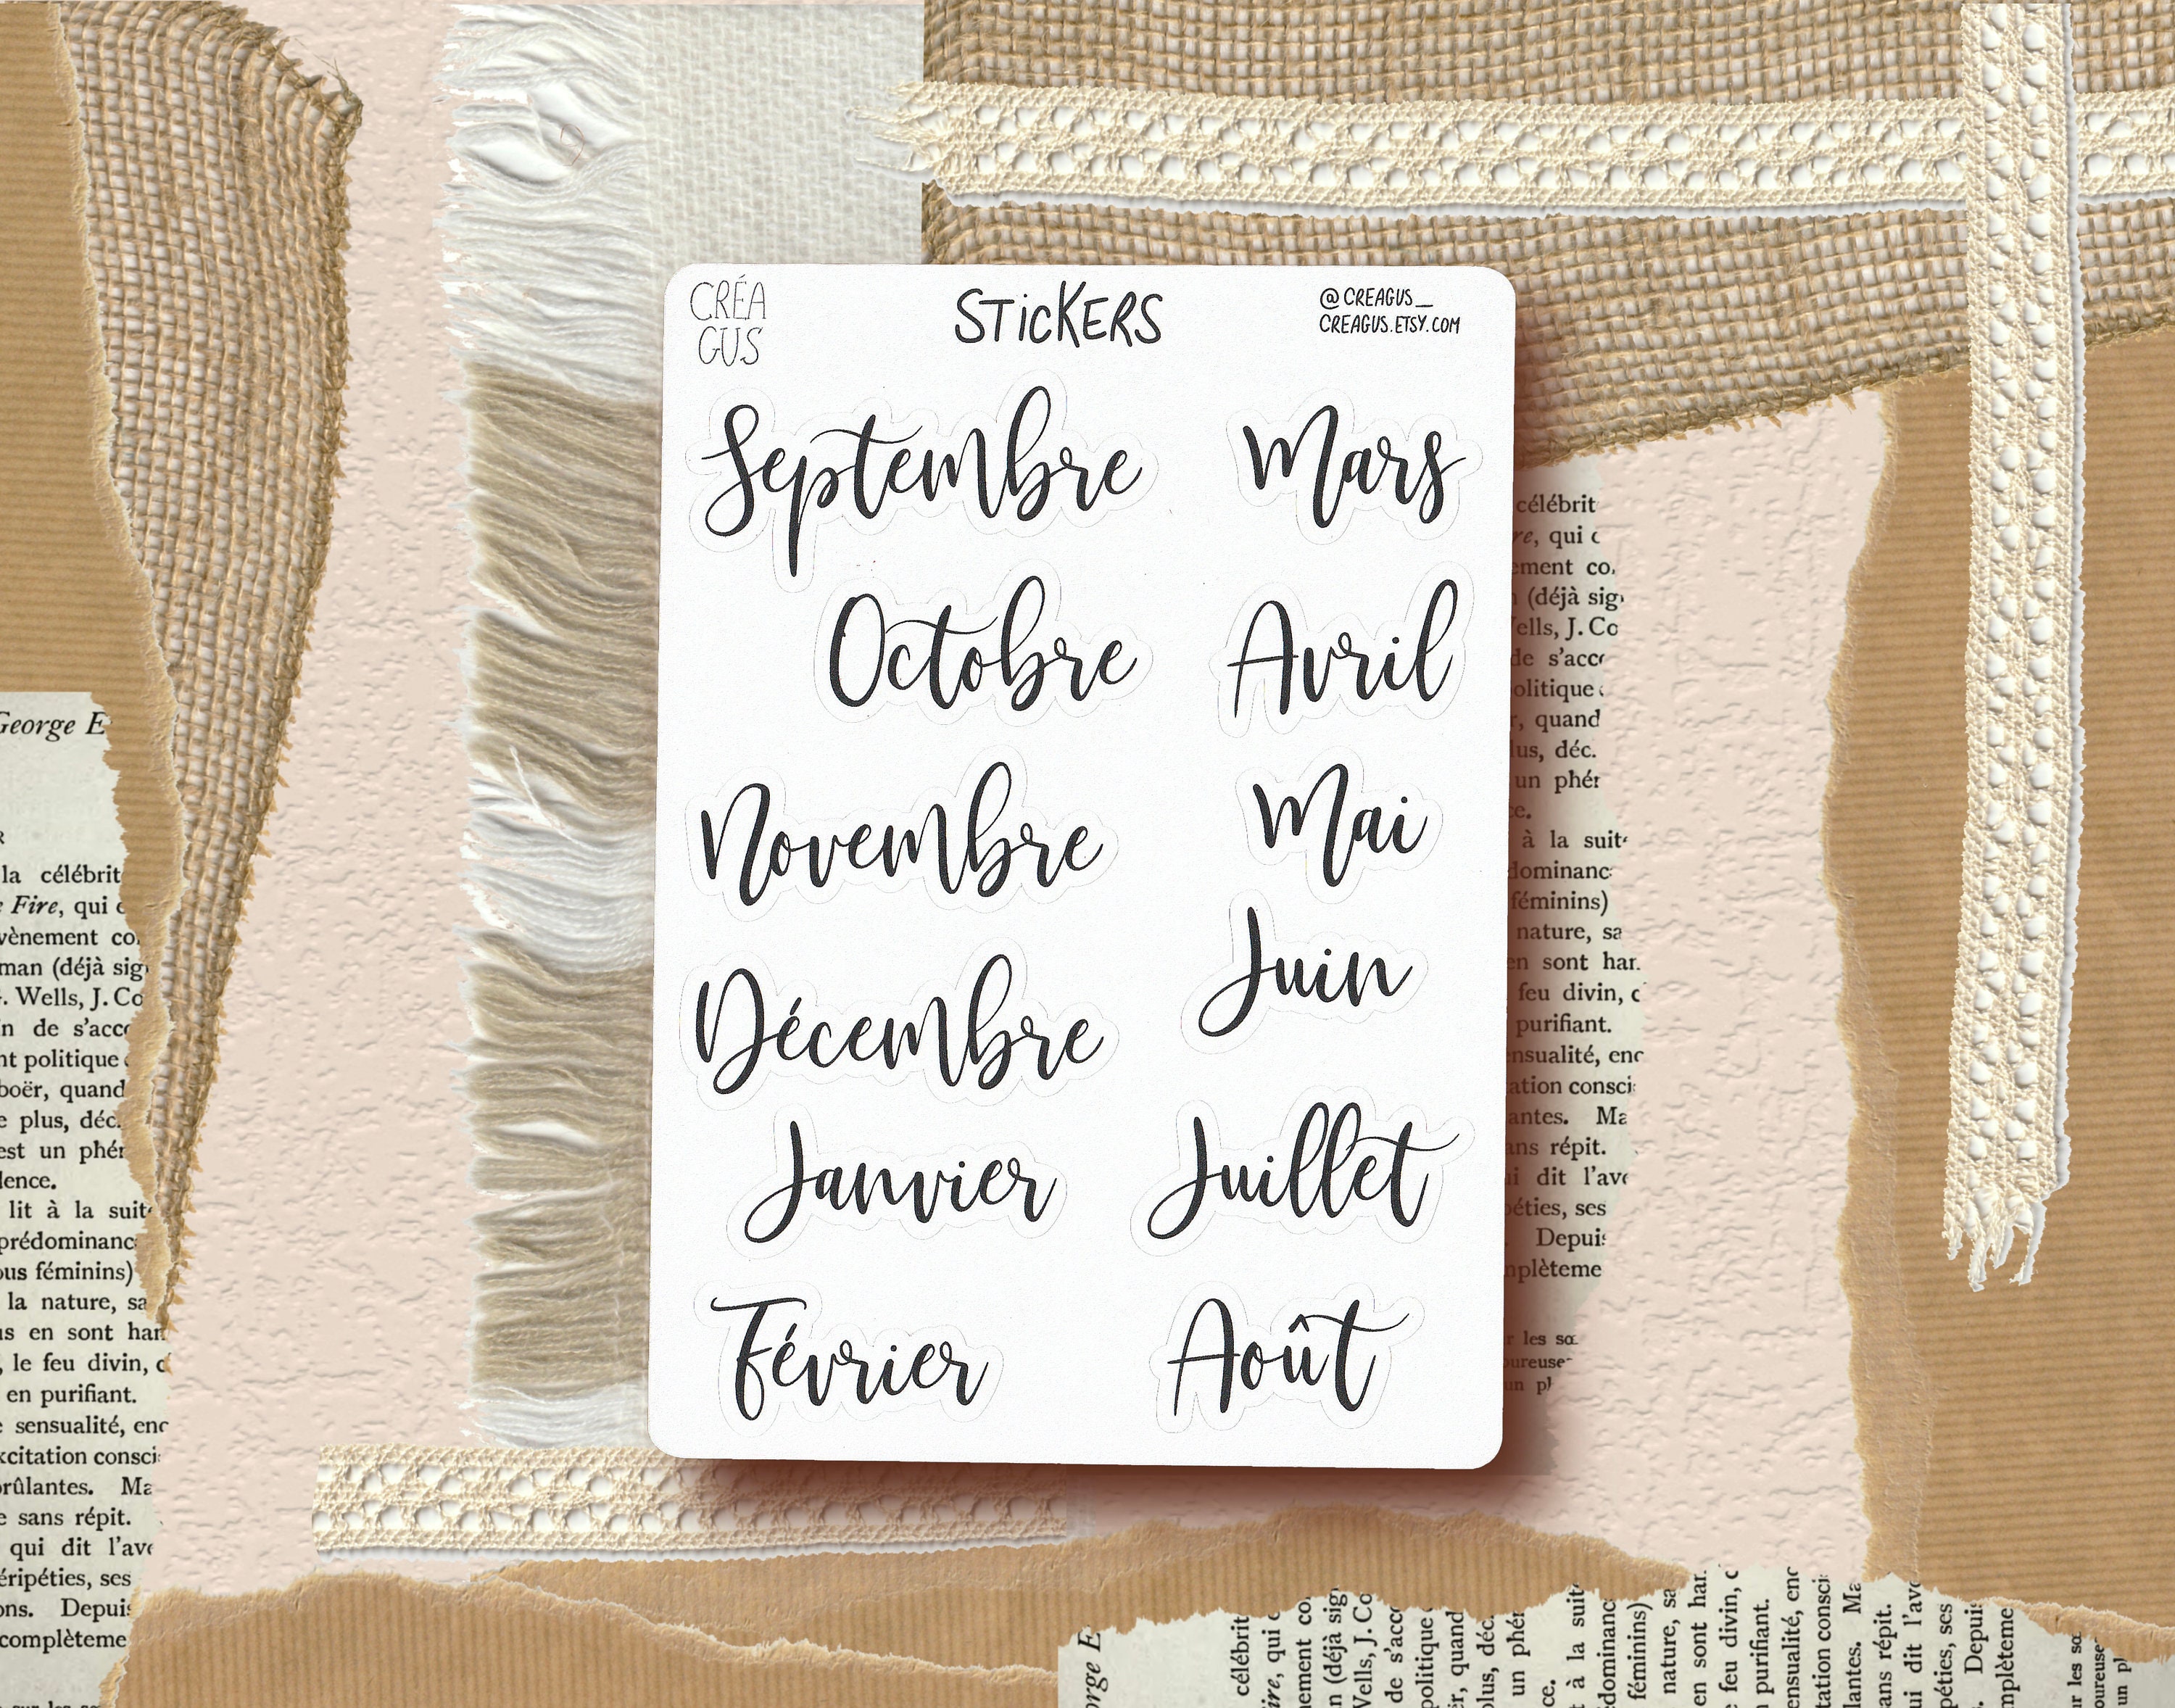 CRÉA
GUS
STiCKERS
@CREAGUS_
CREAGUS.ETSY.COM
Septembre
Octobre
Novembre
Décembre
Janvier
Février
Mars
Avril
Mai
Juin
Juillet
Août
George E
la célébrit
Fire, qui
vènement co
man (déjà sig
. Wells, J. Co
n de s'acc
nt politique
boër, quand
e plus, déc.
est un phér
lence.
lit à la suit
prédominanc
ous féminins)
la nature, sa
us en sont har
, le feu divin, c
en purifiant.
e sensualité, enc
xcitation consci
brûlantes. Ma
e sans répit.
qui dit l'ave
éripéties, ses
ons. Depuis
complèteme
célébrit
re, qui
ement co
(déjà sig
ells, J. Co
de s'acc
olitique
r, quand
lus, déc.
un phér
ce.
à la suit
dominanc
féminins)
nature, sa
en sont har
feu divin, c
purifiant.
ensualité, enc
ation consci
antes. Ma
ans répit.
ui dit l'ave
péties, ses
Depuis
mplèteme
r les sœ
oureuse
un pl